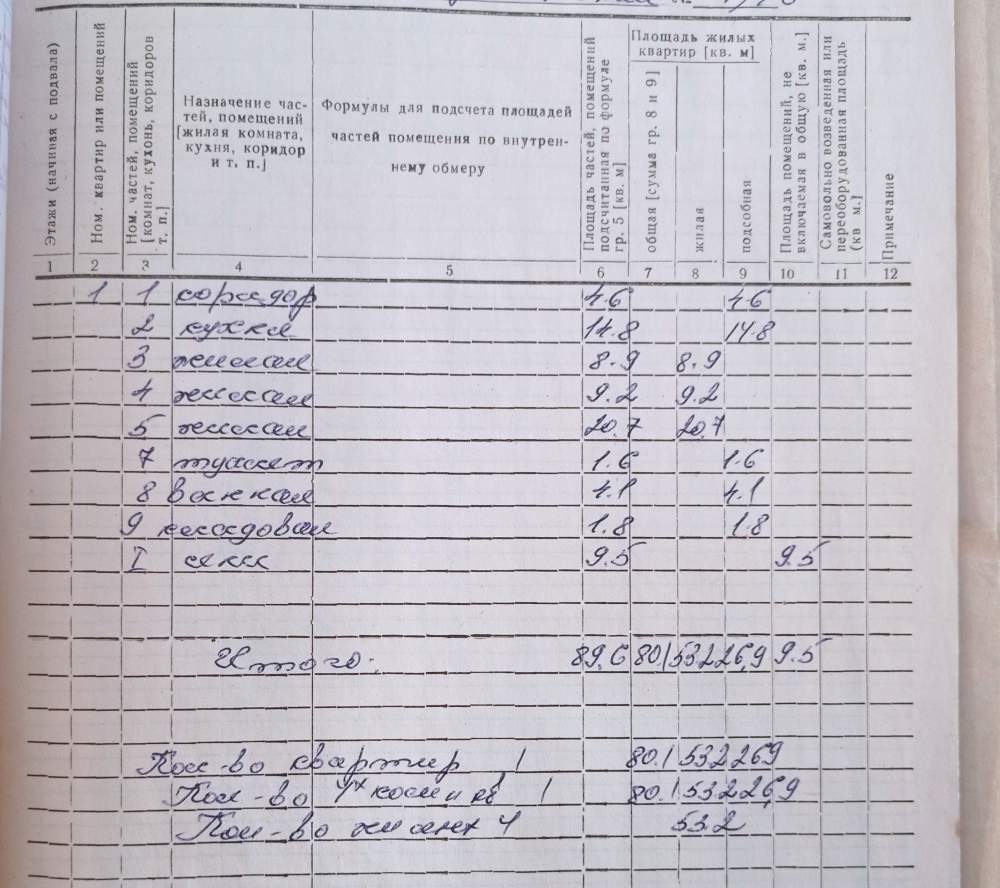 Этажи (начиная с подвала)
Ном. квартир или помещений
Ном. частей, помещений [комнат, кухонь, коридоров т. п.]
Назначение час-
тей, помещений
[жилая комната,
кухня, коридор
и т. п.]
Формулы для подсчета площадей
частей помещения по внутрен-
нему обмеру
Площадь частей, помещений подсчитанная по формуле гр. 5 [кв. м]
Площадь жилых
квартир [кв. м]
общая [сумма гр. 8 и 9]
жилая
подсобная
Площадь помещений, не включаемая в общую [кв. м.]
Самовольно возведенная или переоборудованная площадь (кв м.)
Примечание
1 2 3 4 5 6 7 8 9 10 11 12
1 1 коридор 4.6 4.6
2 кухня 14.8 14.8
3 жилая 8.9 8.9
4 жилая 9.2 9.2
5 жилая 20.7 20.7
7 туалет 1.6 1.6
8 ванная 4.1 4.1
9 кладовая 1.8 1.8
I сени 9.5 9.5
Итого: 89.6 80.1 53.2 26,9 9.5
Кол-во квартир 1 80.1 53.2 26.9
Кол-во 4х комн кв 1 80.1 53.2 26,9
Кол-во жилых 4 53.2